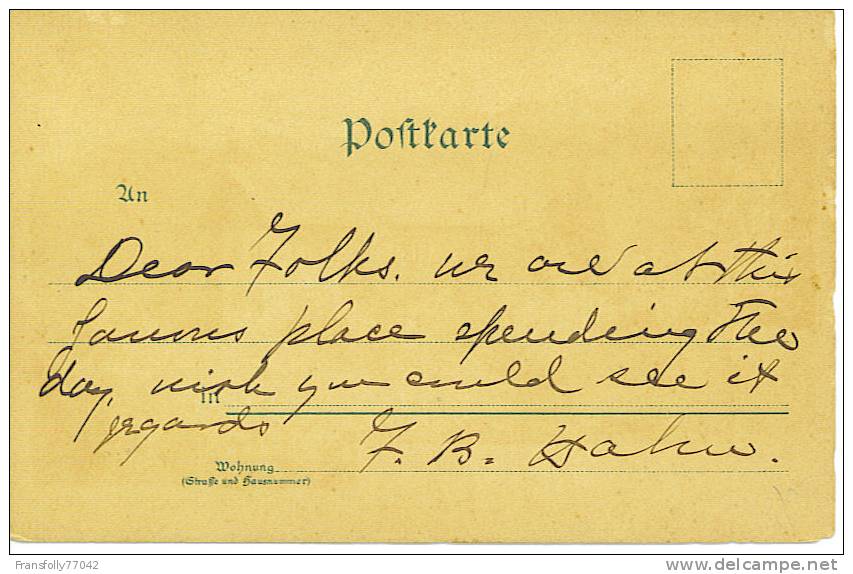 Postkarte
An
Dear Folks. we are at this
famous place spending the
day, wish you could see it
in
regards F. B. Hahn.
Wohnung
(Straße und Hausnummer)
Fransfolly77042
www.delcampe.net